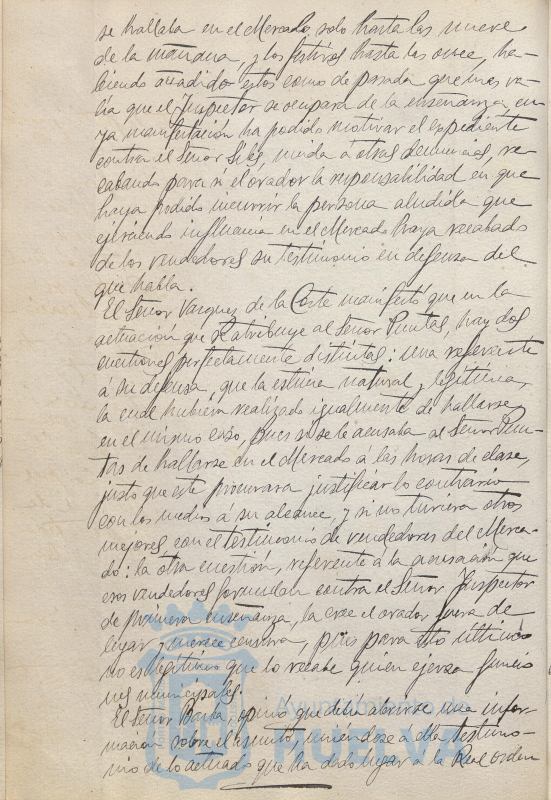 se hallaba en el Mercado solo hasta las nueve
de la mañana, y los festivos hasta las once, ha-
biendo añadido estos como de pasada que mas va-
lia que el Inspector se ocupara de la enseñanza, cu-
ya manifestación ha podido motivar el expediente
contra el Señor Siles, unida á otras denuncias, re-
cabando para si el orador la responsabilidad en que
haya podido incurrir la persona aludida que
ejerciendo influencia en el Mercado haya recabado
de los vendedores su testimonio en defensa del
que habla.
El Señor Vazquez de la Corte manifestó que en la
actuación que se atribuye al Señor Puntas, hay dos
cuestiones perfectamente distintas: una referente
á su defensa, que la estima natural y legitima,
la cual hubiera realizado igualmente de hallarse
en el mismo caso, pues si se le acusaba al Señor Pun-
tas de hallarse en el Mercado á las horas de clase,
justo que este procurara justificar lo contrario
con los medios á su alcance, y si no tuviera otros
mejores, con el testimonio de vendedores del Merca-
do: la otra cuestión, referente á la acusación que
esos vendedores formulan contra el Señor Inspector
de primera enseñanza, la cree el orador fuera de
lugar y merece censura, pues para esto ultimo
no es legitimo que lo recabe quien ejerza funcio
nes municipales.
El Señor Barba, opino que debia abrirse una infor-
macion sobre el asunto, uniendose a ella testimo-
nio de lo actuado que ha dado lugar á la Real orden
Ayuntamiento de
HUELVA